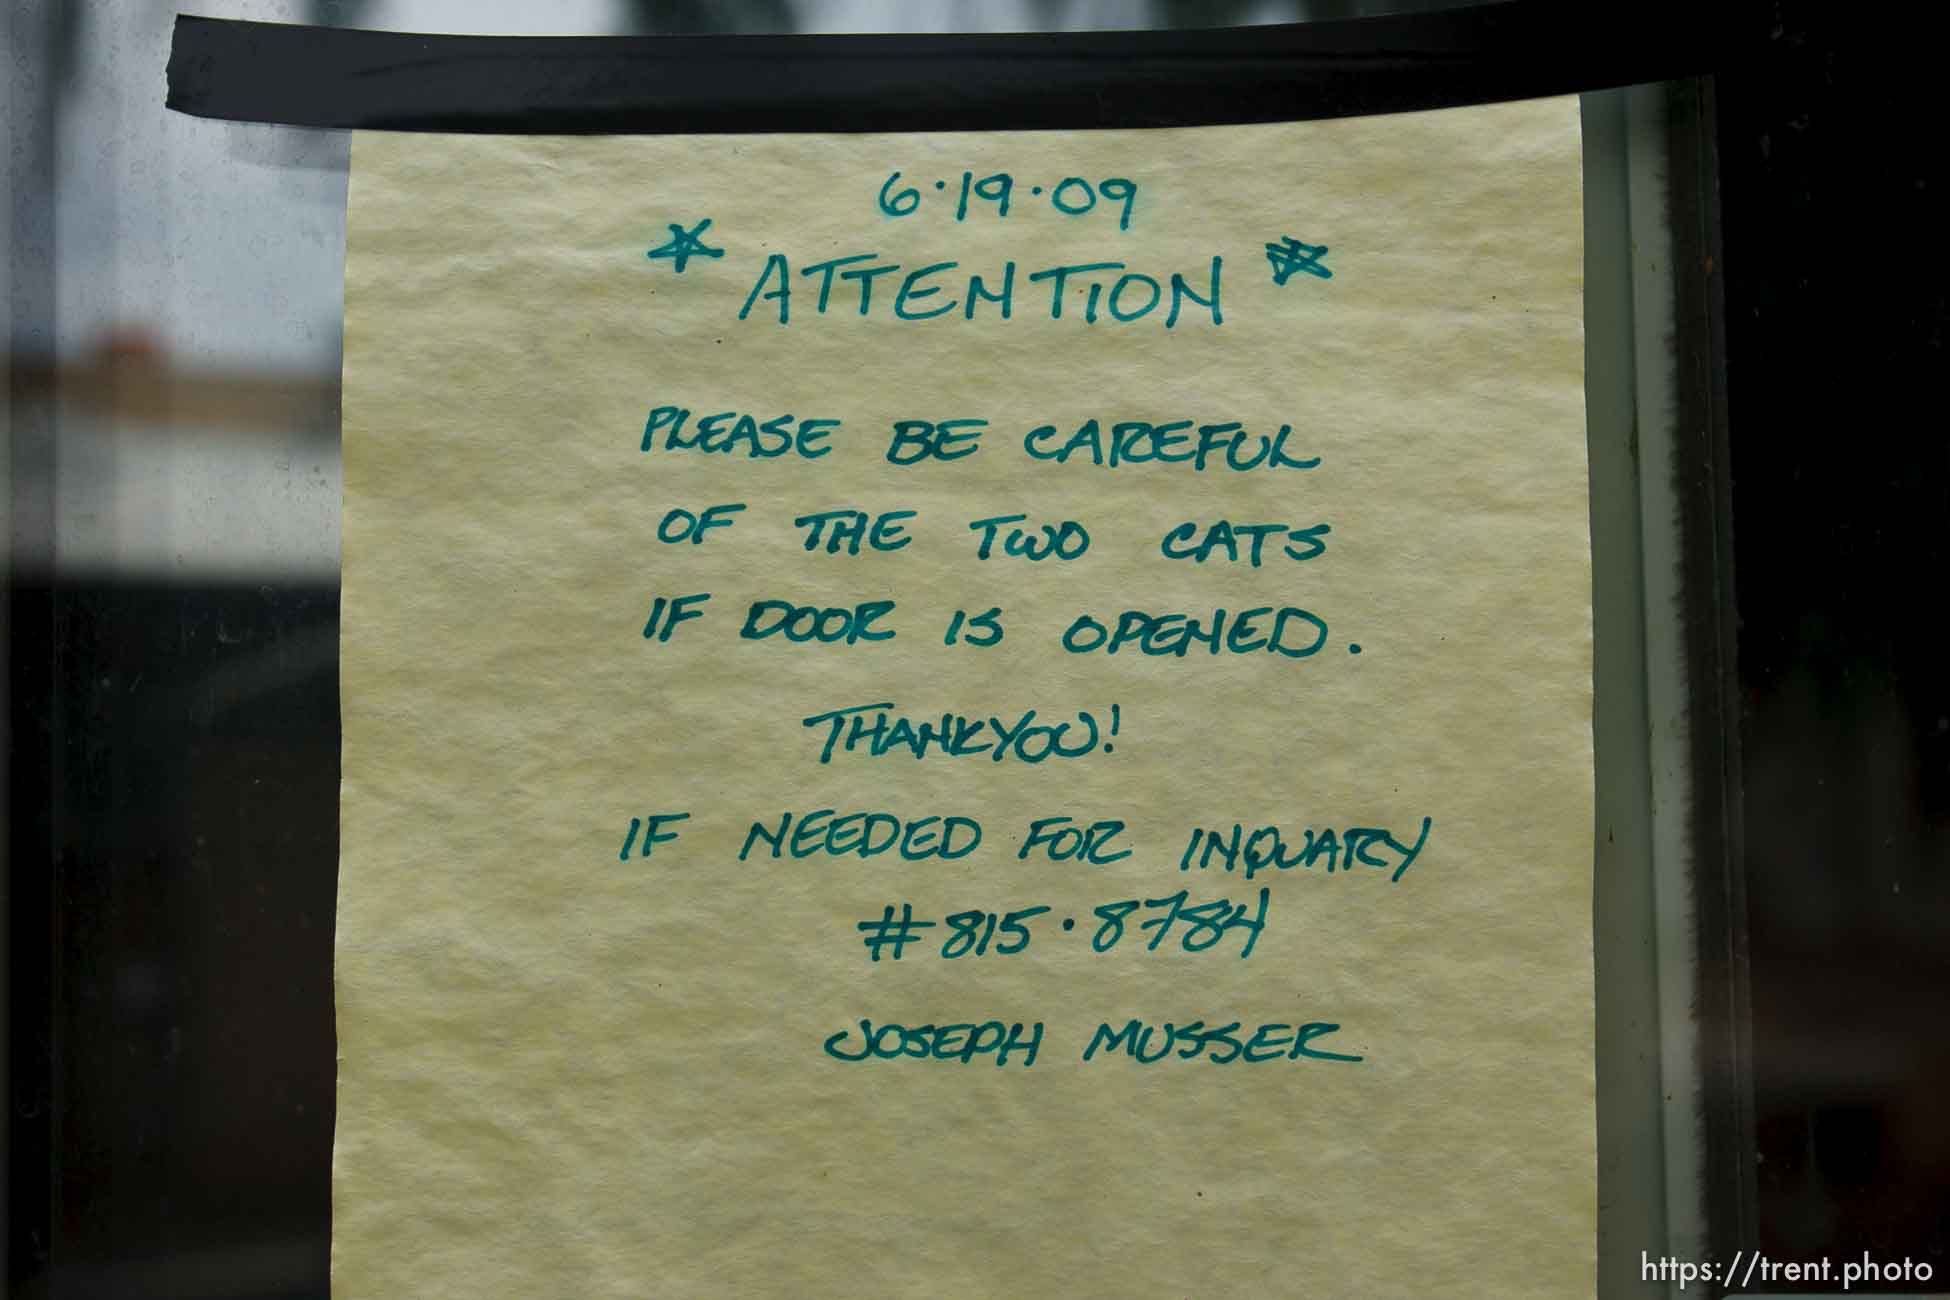 6·19·09
☆ ATTENTION ☆
PLEASE BE CAREFUL
OF THE TWO CATS
IF DOOR IS OPENED.
THANKYOU!
IF NEEDED FOR INQUARY
#815·8784
JOSEPH MUSSER
https://trent.photo